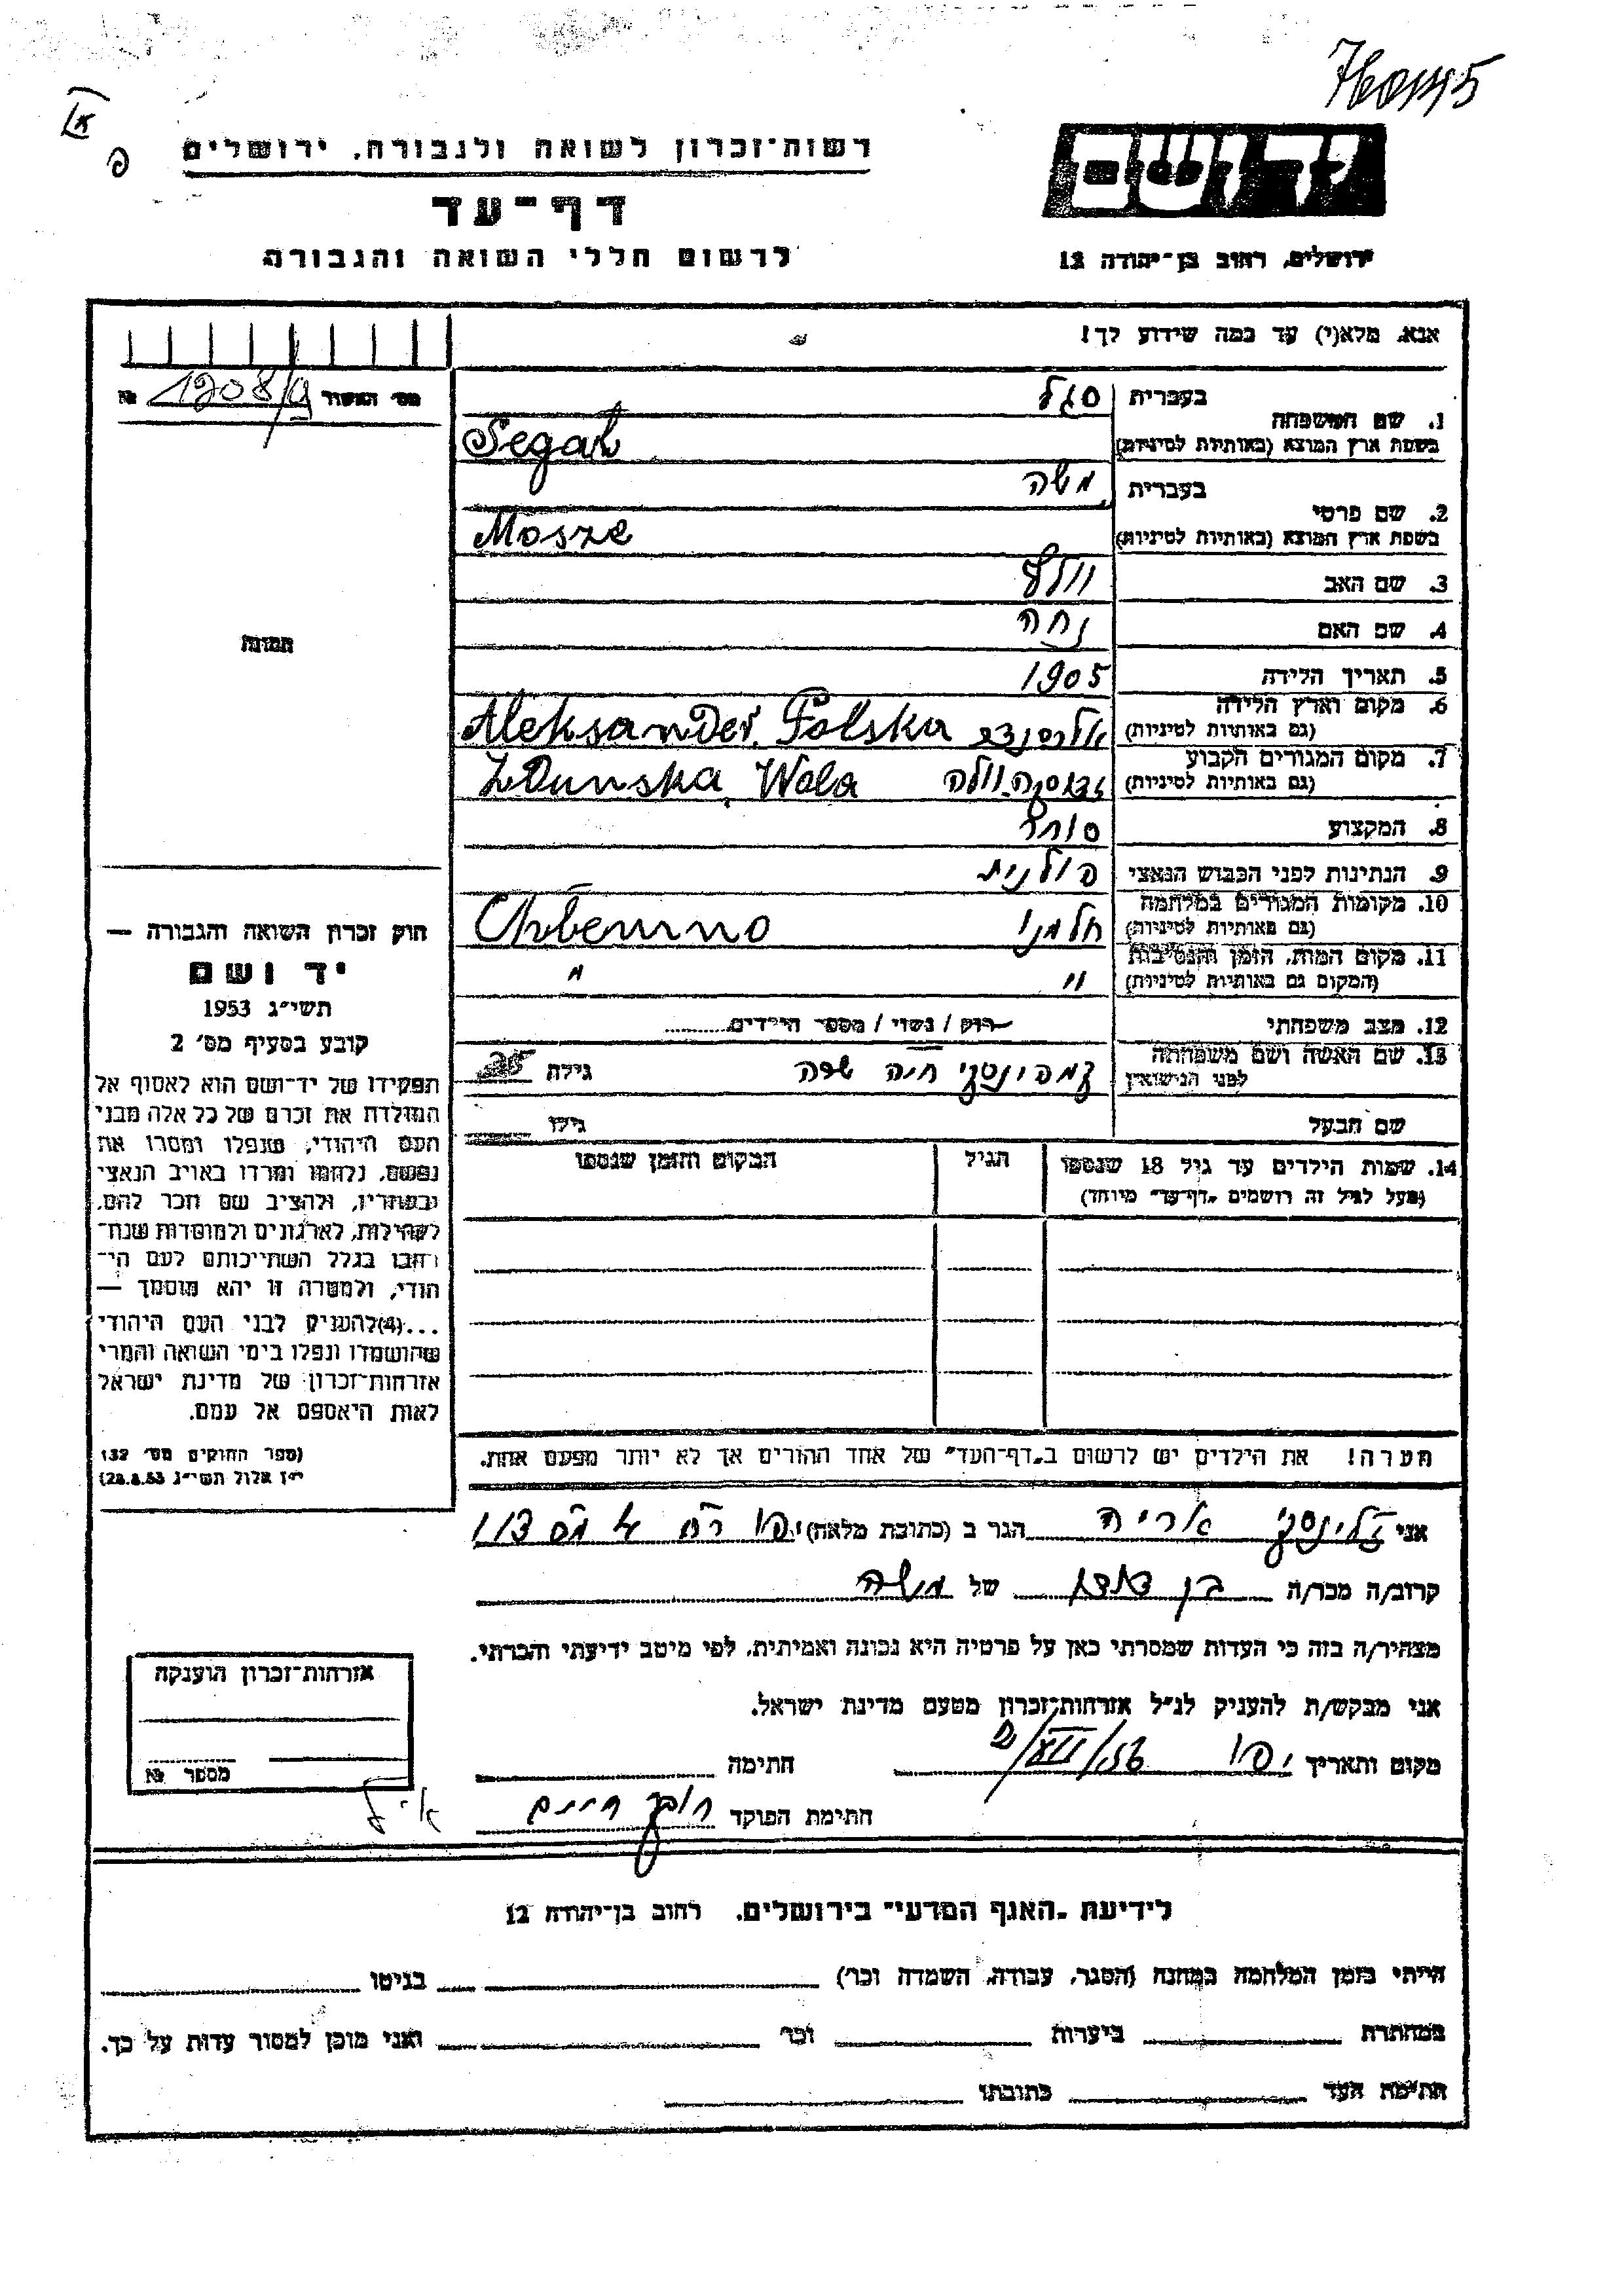 רשות-זכרון לשואה ולגבורה, ירושלים
יד ושם
דף-עד
לרשום חללי השואה והגבורה
ירושלים, רחוב בן-יהודה 12
אנא, מלא(י) עד כמה שידוע לך!
מס' האשור №
1. שם המשפחה
בעברית סגל
בשפת ארץ המוצא (באותיות לטיניות) Segał
2. שם פרטי
בעברית משה
בשפת ארץ המוצא (באותיות לטיניות) Mosze
3. שם האב וולף
4. שם האם נחה
5. תאריך הלידה 1905
6. מקום וארץ הלידה
(גם באותיות לטיניות) Aleksander, Polska
7. מקום המגורים הקבוע
(גם באותיות לטיניות) Zdunska Wola
8. המקצוע סוחר
9. הנתינות לפני הכבוש הנאצי פולנית
10. מקומות המגורים במלחמה
(גם באותיות לטיניות) חלמנו
11. מקום המות, הזמן והנסיבות
(המקום גם באותיות לטיניות) " "
12. מצב משפחתי רוק / נשוי / מספר הילדים
13. שם האשה ושם משפחתה
לפני הנישואין חיה שרה גילה
שם הבעל גילו
14. שמות הילדים עד גיל 18 שנספו הגיל המקום והזמן שנספו
(מעל לגיל זה רושמים "דף-עד" מיוחד)
הערה! את הילדים יש לרשום ב"דף-העד" של אחד ההורים אך לא יותר מפעם אחת.
תמונה
חוק זכרון השואה והגבורה —
יד ושם
תשי"ג 1953
קובע בסעיף מס' 2
תפקידו של יד-ושם הוא לאסוף אל
המולדת את זכרם של כל אלה מבני
העם היהודי, שנפלו ומסרו את
נפשם, נלחמו ומרדו באויב הנאצי
ובעוזריו, ולהציב שם וזכר להם,
לקהילות, לארגונים ולמוסדות שנח-
רבו בגלל השתייכותם לעם הי-
הודי, ולמטרה זו יהא מוסמך —
...(4)להעניק לבני העם היהודי
שהושמדו ונפלו בימי השואה והמרי
אזרחות-זכרון של מדינת ישראל
לאות היאספם אל עמם.
(ספר החוקים מס' 132
י"ז אלול תשי"ג 28.8.53)
אני אריה הגר ב (כתובת מלאה) יפו
קרוב/ה מכר/ה בן דוד של משה
מצהיר/ה בזה כי העדות שמסרתי כאן על פרטיה היא נכונה ואמיתית, לפי מיטב ידיעתי והכרתי.
אני מבקש/ת להעניק לנ"ל אזרחות-זכרון מטעם מדינת ישראל.
מקום ותאריך יפו חתימה
חתימת הפוקד חיים
אזרחות-זכרון הוענקה
מספר №
לידיעת "האגף המדעי" בירושלים, רחוב בן-יהודה 12
הייתי בזמן המלחמה במחנה (הסגר, עבודה, השמדה וכו') בגיטו
במחתרת ביערות וכו' ואני מוכן למסור עדות על כך.
חתימת העד כתובתו